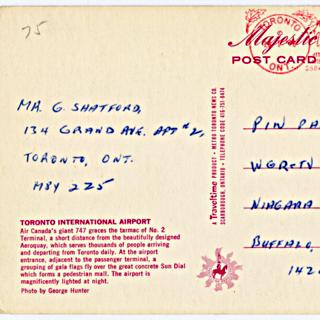 75
TORONTO
ONT.
Majestic
POST CARD
MR. G. SHATFORD,
134 GRAND AVE. APT #2,
TORONTO, ONT.
M8Y 2Z5
PIN PA
WGR-TV
NIAGARA
BUFFALO,
142
A Traveltime PRODUCT - METRO TORONTO NEWS CO.
SCARBOROUGH, ONTARIO - TELEPHONE CODE 416-751-8474
TORONTO INTERNATIONAL AIRPORT
Air Canada's giant 747 graces the tarmac of No. 2
Terminal, a short distance from the beautifully designed
Aeroquay, which serves thousands of people arriving
and departing from Toronto daily. At the airport
entrance, adjacent to the passenger terminal, a
grouping of gala flags fly over the great concrete Sun Dial
which forms a pedestrian mall. The airport is
magnificently lighted at night.
Photo by George Hunter